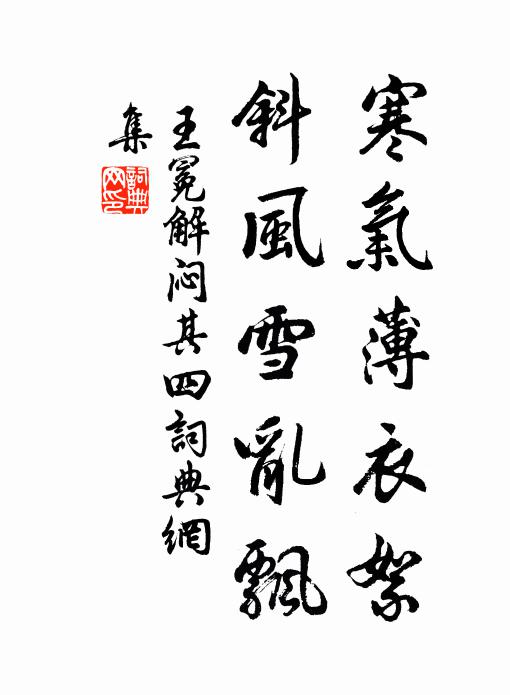 寒氣薄衣絮
斜風雪亂飄
王冕解闷其四詞典網
集
詞典网印